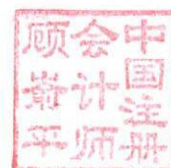 中国注册
会计师
顾平